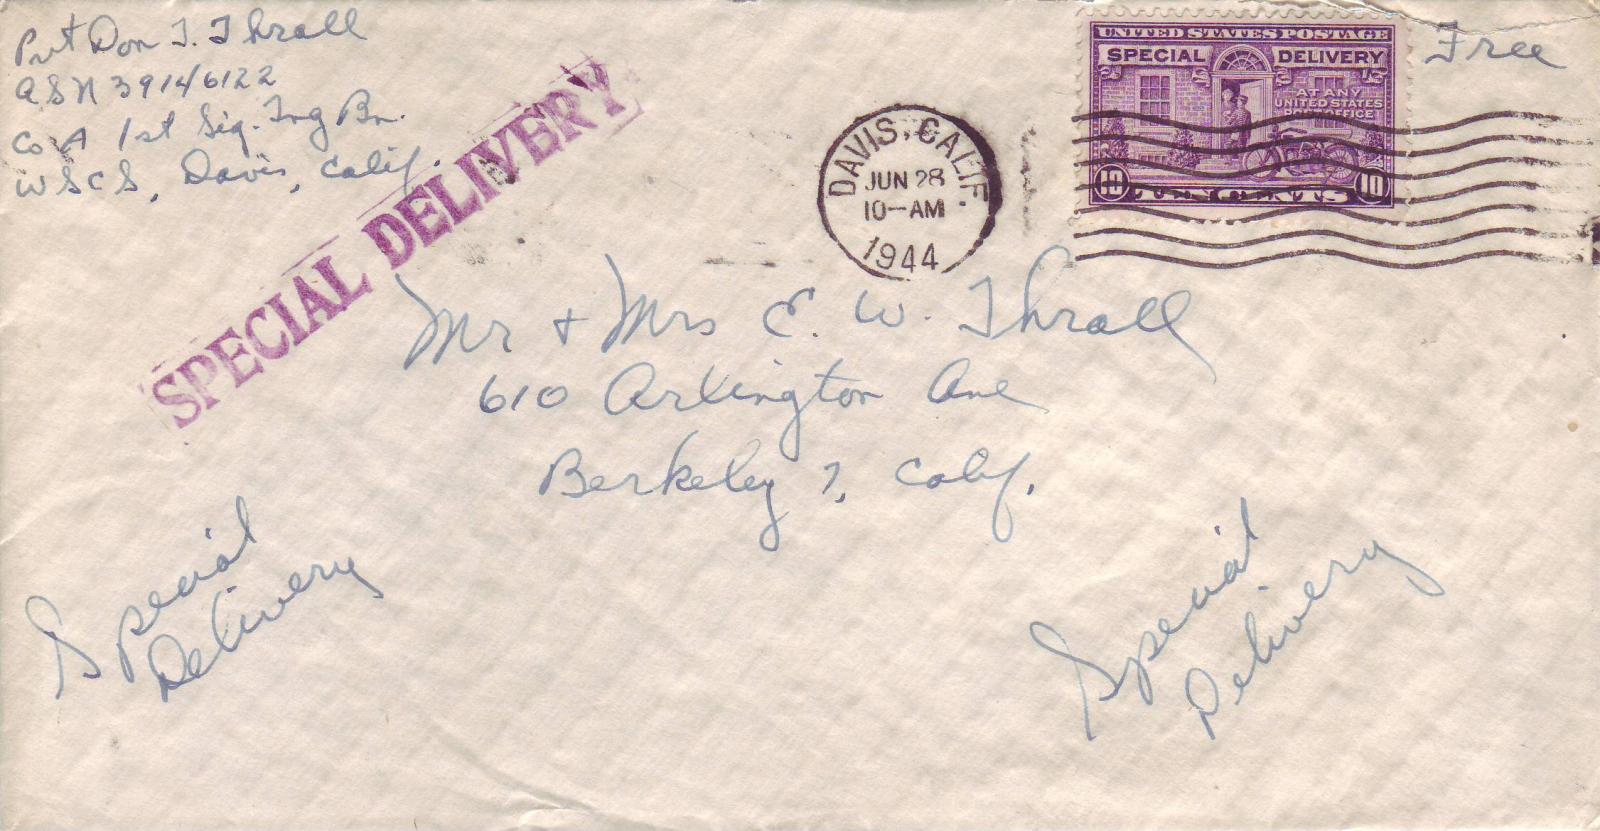 Pvt Don T. Thrall
ASN 39146122
Co A 1st Sig. Trg Bn.
WSCS, Davis, Calif.
SPECIAL DELIVERY
DAVIS, CALIF.
JUN 28
10-AM
1944
UNITED STATES POSTAGE
SPECIAL DELIVERY
AT ANY
UNITED STATES
POST OFFICE
10 TEN CENTS 10
Free
Mr + Mrs E. W. Thrall
610 Arlington Ave
Berkeley 7, Calif.
Special
Delivery
Special
Delivery